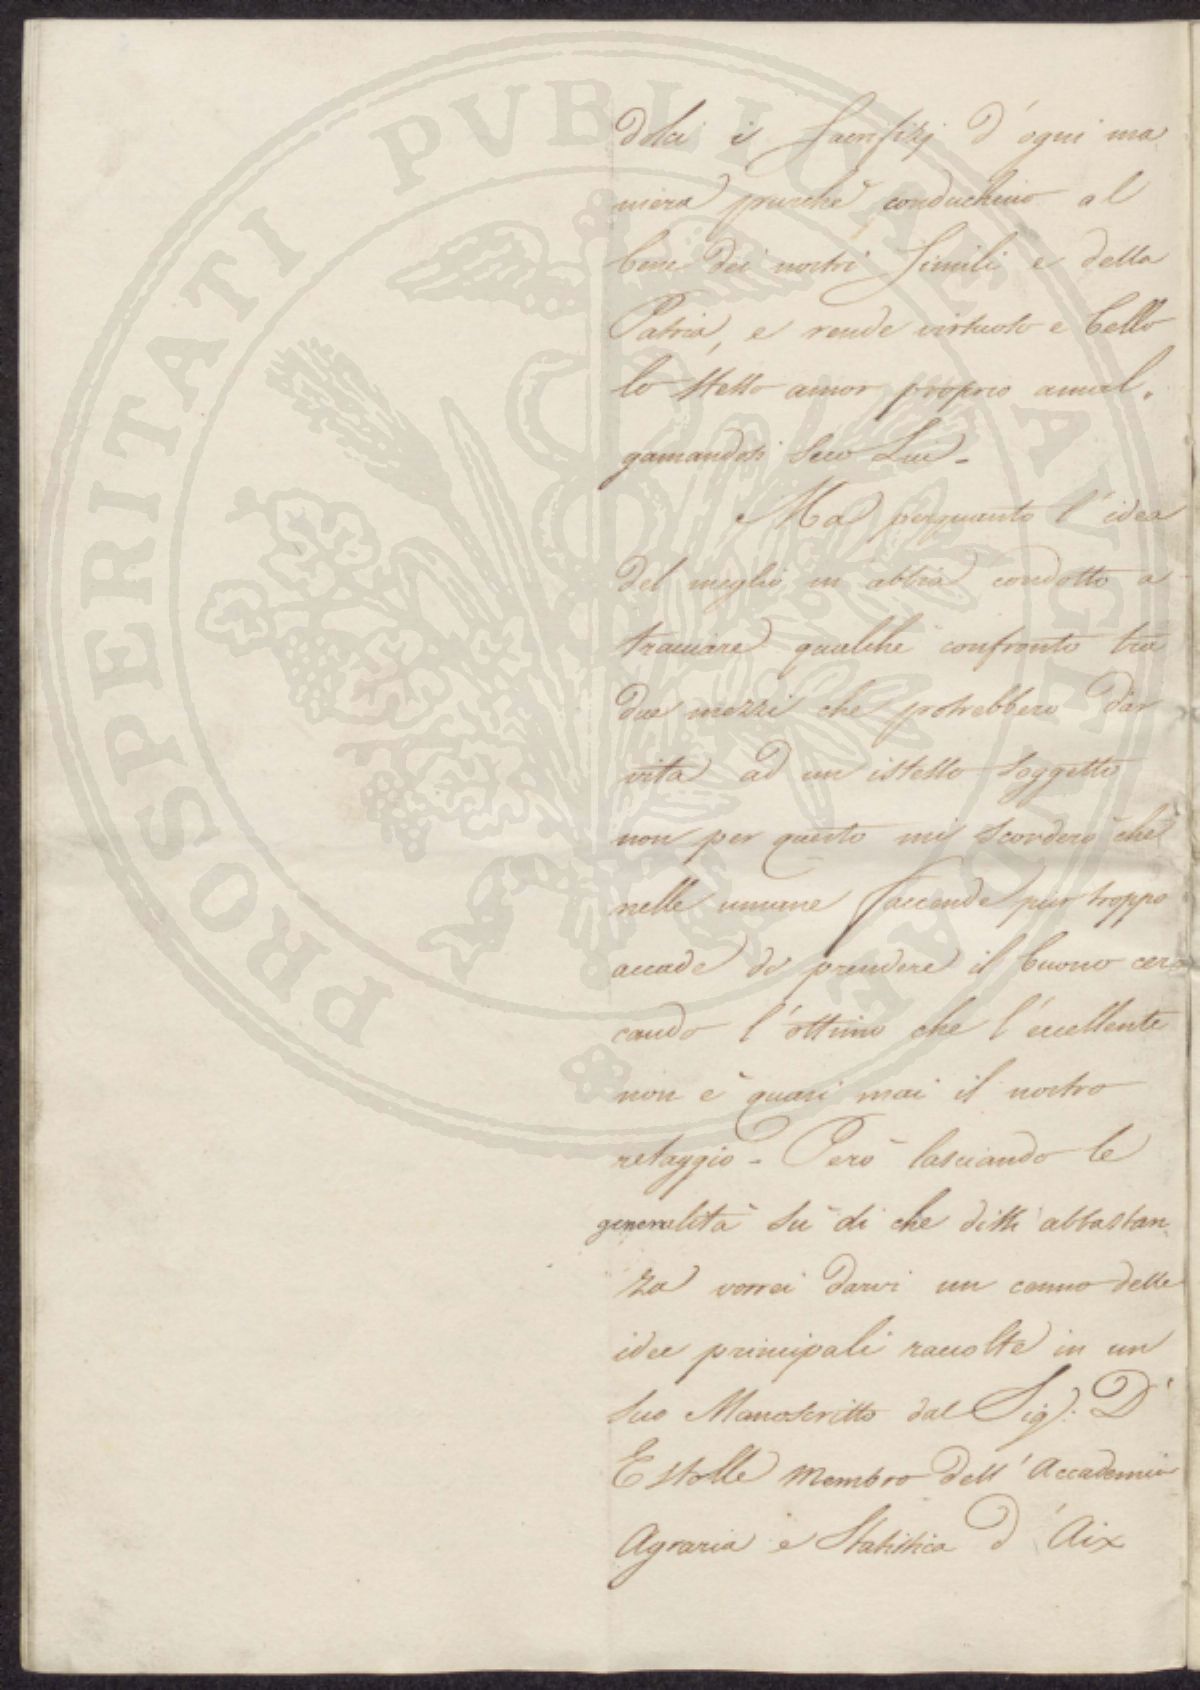 dolci i Sacrifizj d'ogni ma
niera purché conduchino al
bene dei nostri Simili e della
Patria, e rende virtuoso e bello
lo stesso amor proprio amal,
gamandosi seco Lui.
Ma perquanto l'idea
del meglio m abbia condotto a
tracciare qualche confronto tra
due mezzi che potrebbero dàr
vita ad un istesso soggetto
non per questo mi scorderò che
nelle umane faccende pur troppo
accade di prendere il buono cer
cando l'ottimo che l'eccellente
non è quasi mai il nostro
retaggio - Però lasciando le
generalità sù di che dissi abbastan
za vorrei darvi un cenno delle
idee principali raccolte in un
suo Manoscritto dal Sig: D'
Estolle Membro dell'Accademia
Agraria e Statistica d'Aix
PROSPERITATI PVBLICAE AVGENDAE